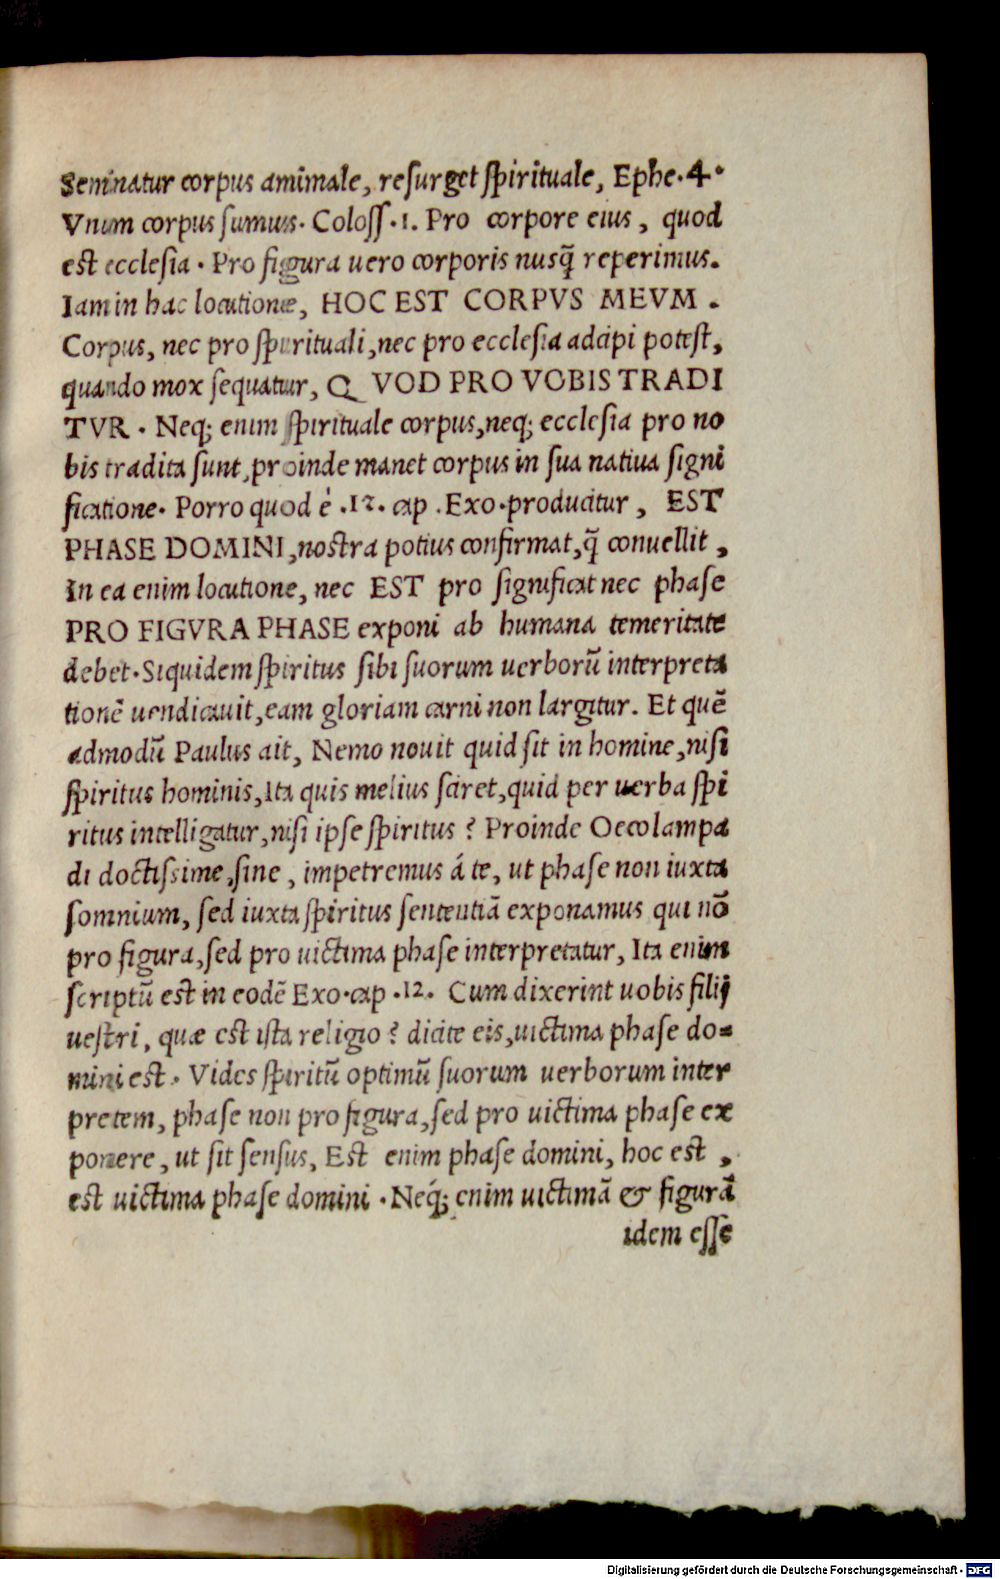 Seminatur corpus amimale, resurget spirituale, Ephe. 4.
Vnum corpus sumus. Coloss. 1. Pro corpore eius, quod
est ecclesia. Pro figura uero corporis nusq̃ reperimus.
Iam in hac locutione, HOC EST CORPVS MEVM.
Corpus, nec pro spirituali, nec pro ecclesia adcipi potest,
quando mox sequatur, QVOD PRO VOBIS TRADI
TVR. Neq; enim spirituale corpus, neq; ecclesia pro no
bis tradita sunt, proinde manet corpus in sua natiua signi
ficatione. Porro quod è .12. cap. Exo. producitur, EST
PHASE DOMINI, nostra potius confirmat, q̃ conuellit,
In ea enim locutione, nec EST pro significat nec phase
PRO FIGVRA PHASE exponi ab humana temeritate
debet. Siquidem spiritus sibi suorum uerborũ interpreta
tionẽ uendicauit, eam gloriam carni non largitur. Et quẽ
admodũ Paulus ait, Nemo nouit quid sit in homine, nisi
spiritus hominis, Ita quis melius sciret, quid per uerba spi
ritus intelligatur, nisi ipse spiritus? Proinde Oecolampa
di doctissime, sine, impetremus á te, ut phase non iuxta
somnium, sed iuxta spiritus sententiã exponamus qui nõ
pro figura, sed pro uictima phase interpretatur, Ita enim
scriptũ est in eodẽ Exo. cap. 12. Cum dixerint uobis filij
uestri, quæ est ista religio? dicite eis, uictima phase do=
mini est. Vides spiritũ optimũ suorum uerborum inter
pretem, phase non pro figura, sed pro uictima phase ex
ponere, ut sit sensus, Est enim phase domini, hoc est,
est uictima phase domini. Neq́; enim uictimã & figurã
idem esse
Digitalisierung gefördert durch die Deutsche Forschungsgemeinschaft - DFG